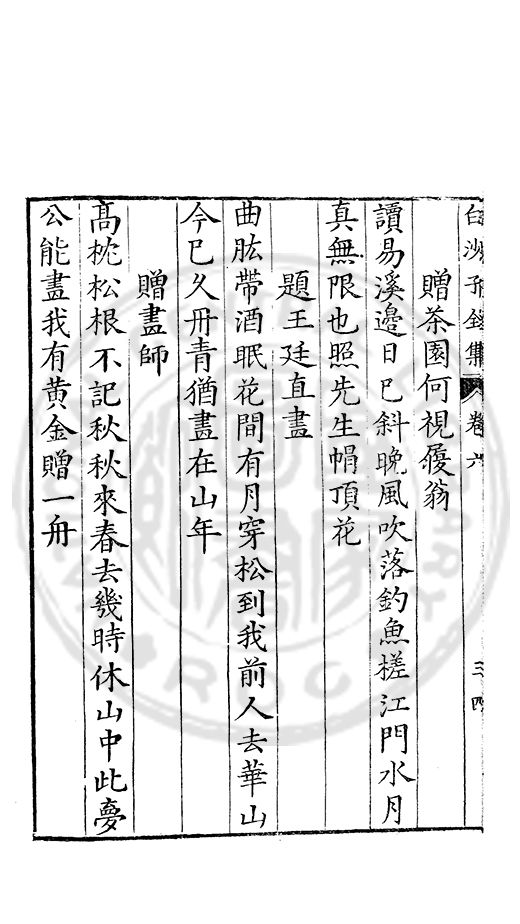 白沙子全集 卷六 三四
贈茶園何視履翁
讀易溪邊日巳斜晚風吹落釣魚槎江門水月
真無限也照先生帽頂花
題王廷直畫
曲肱帶酒眠花間有月穿松到我前人去華山
今巳久丹青猶畫在山年
贈畫師
高枕松根不記秋秋來春去幾時休山中此夢
公能畫我有黄金贈一舟